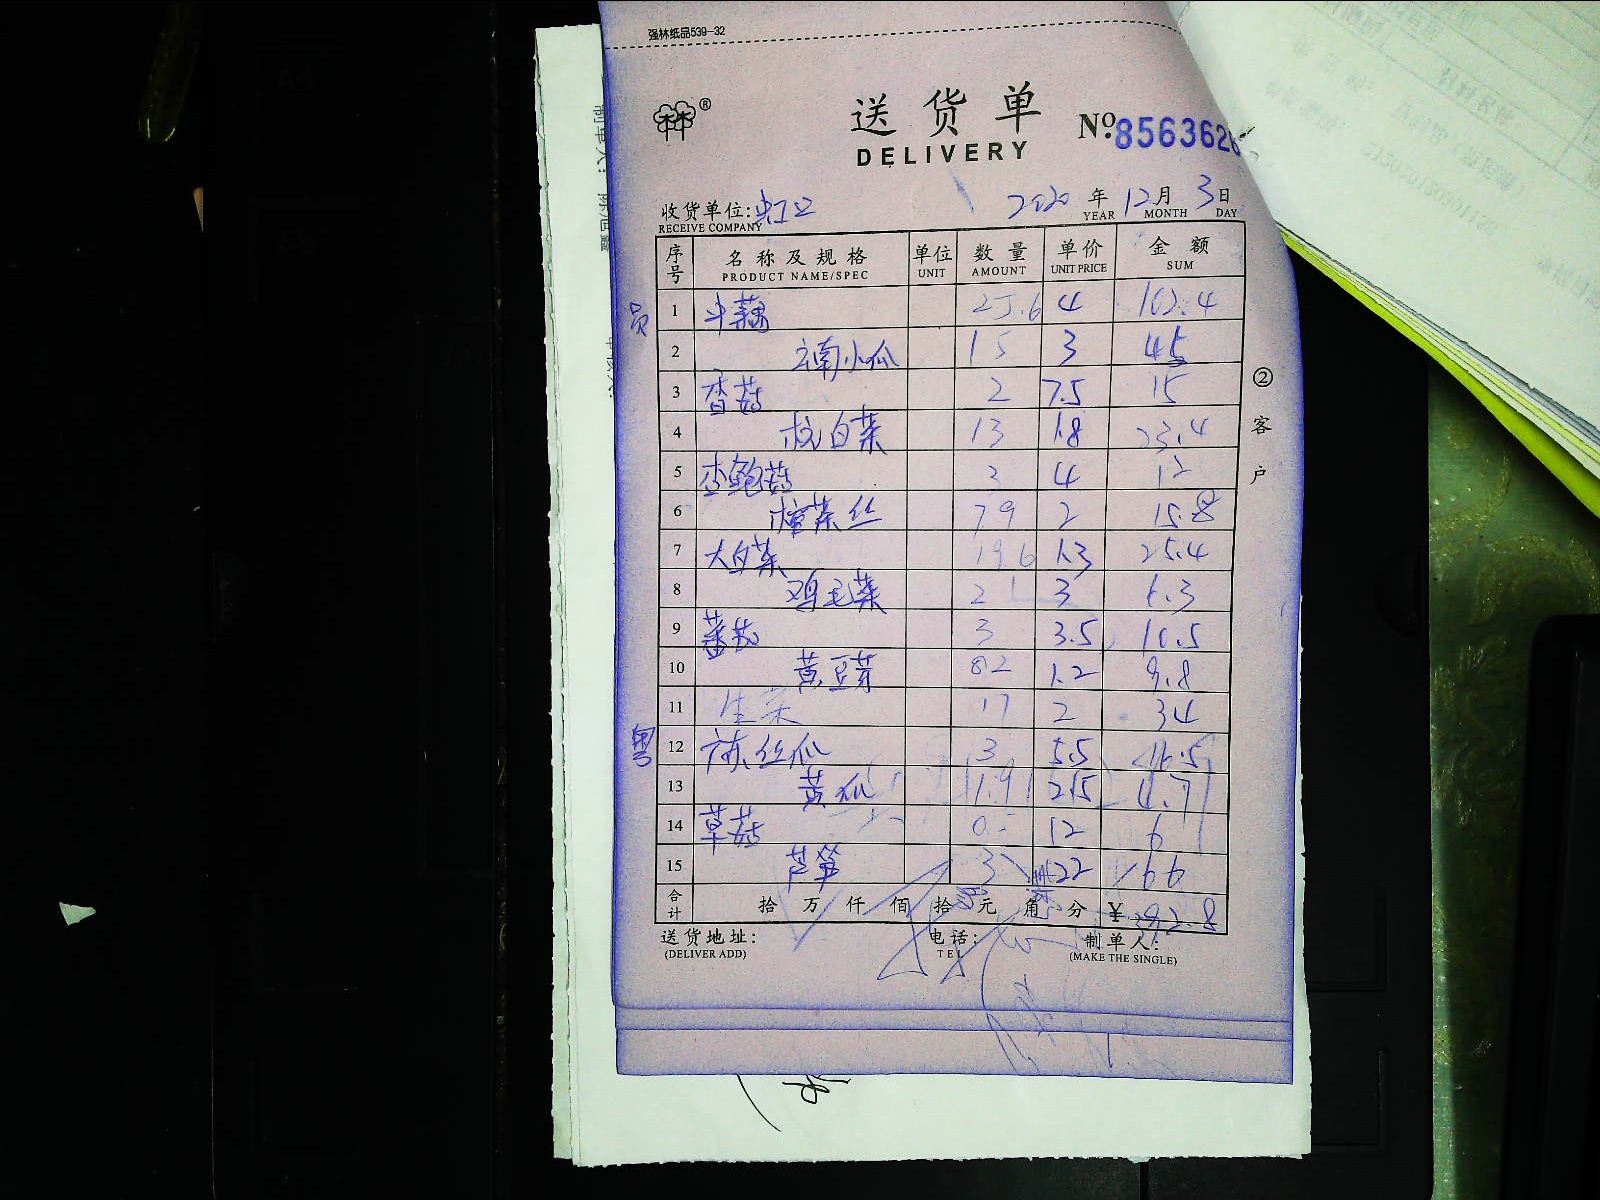 强林纸品539-32
林林®
送货单
DELIVERY
No.856362
收货单位:虹口
RECEIVE COMPANY
2020年12月3日
YEAR MONTH DAY
序号 名称及规格 单位 数量 单价 金额
PRODUCT NAME/SPEC UNIT AMOUNT UNIT PRICE SUM
员
1 斗藕 25.6 4 102.4
2 云南小瓜 15 3 45
3 香菇 2 7.5 15
4 杭白菜 13 1.8 23.4
5 杏鲍菇 3 4 12
6 榨菜丝 7.9 2 15.8
7 大白菜 19.6 1.3 25.4
8 鸡毛菜 2.1 3 6.3
9 蕃茄 3 3.5 10.5
10 黄豆芽 8.2 1.2 9.8
11 生菜 17 2 34
粤
12 广东丝瓜 3 5.5 16.5
13 黄瓜 1.9 2.5 4.7
14 草菇 0.5 12 6
15 芦笋 3 22 66
合计 拾 万 仟 佰 拾 元 角 分 ¥392.8
②客户
送货地址:
(DELIVER ADD)
电话:
TEL
制单人:
(MAKE THE SINGLE)